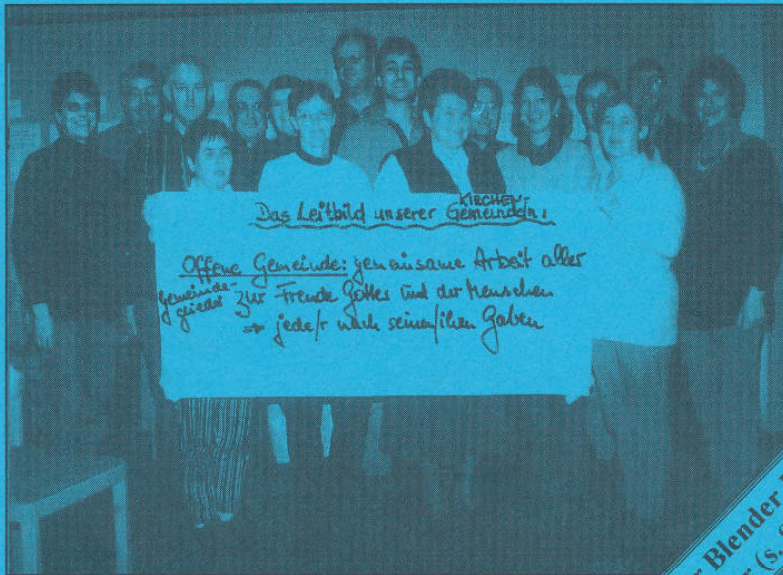 Das Leitbild unserer KIRCHEN-
Gemeinde/n:
Offene Gemeinde: gemeinsame Arbeit aller
Gemeinde-
glieder zur Freude Gottes und der Menschen
⇒ jede/r nach seinen/ihren Gaben
Blender
(s.